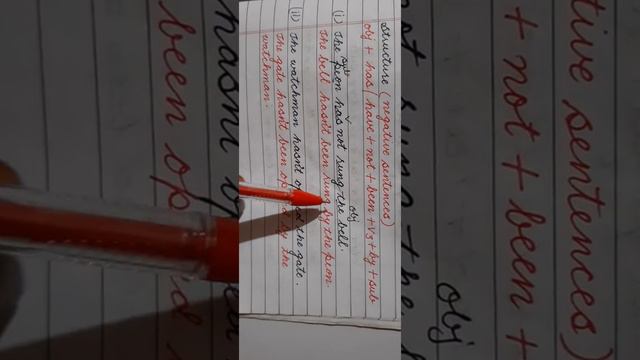 Structure (negative sentences)
obj + has/have + not + been + V3 + by + sub
sub obj
(i) The peon has not rung the bell.
The bell hasn't been rung by the peon.
(ii) The watchman hasn't the gate.
The gate hasn't been by the
watchman.